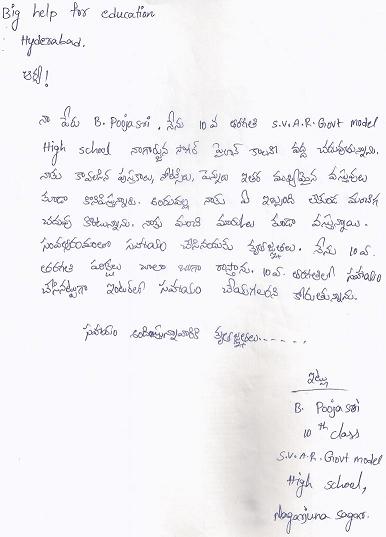 Big help for education
Hyderabad.
అక్క!
నా పేరు B. Poojasri. నేను 10 వ తరగతి S.V.A.R. Govt Model
High school నాగార్జున సాగర్ పైలాన్ కాలనీ వద్ద చదువుతున్నాను.
నాకు కావలసిన పుస్తకాలు, నోట్సులు, పెన్నులు ఇతర ముఖ్యమైన వస్తువులు
కూడా కొనిస్తున్నారు. అందువల్ల నాకు ఏ ఇబ్బంది లేకుండ మంచిగ
చదువు కొంటున్నాను. నాకు మంచి మార్కులు కూడా వస్తున్నాయి.
సంవత్సరంలో సహాయం చేసినందుకు కృతజ్ఞతలు. నేను 10 వ.
తరగతి పరీక్షలు చాలా బాగా రాస్తాను. 10 వ. తరగతిలో సహాయం
చేసినట్లుగా ఇంటర్‌లో సహాయం చేయగలరని కోరుతున్నాను.
సహాయం అందిస్తున్నవారికి కృతజ్ఞతలు......
ఇట్లు
B. Poojasri
10th class
S.V.A.R. Govt model
High school,
Nagarjuna sagar.